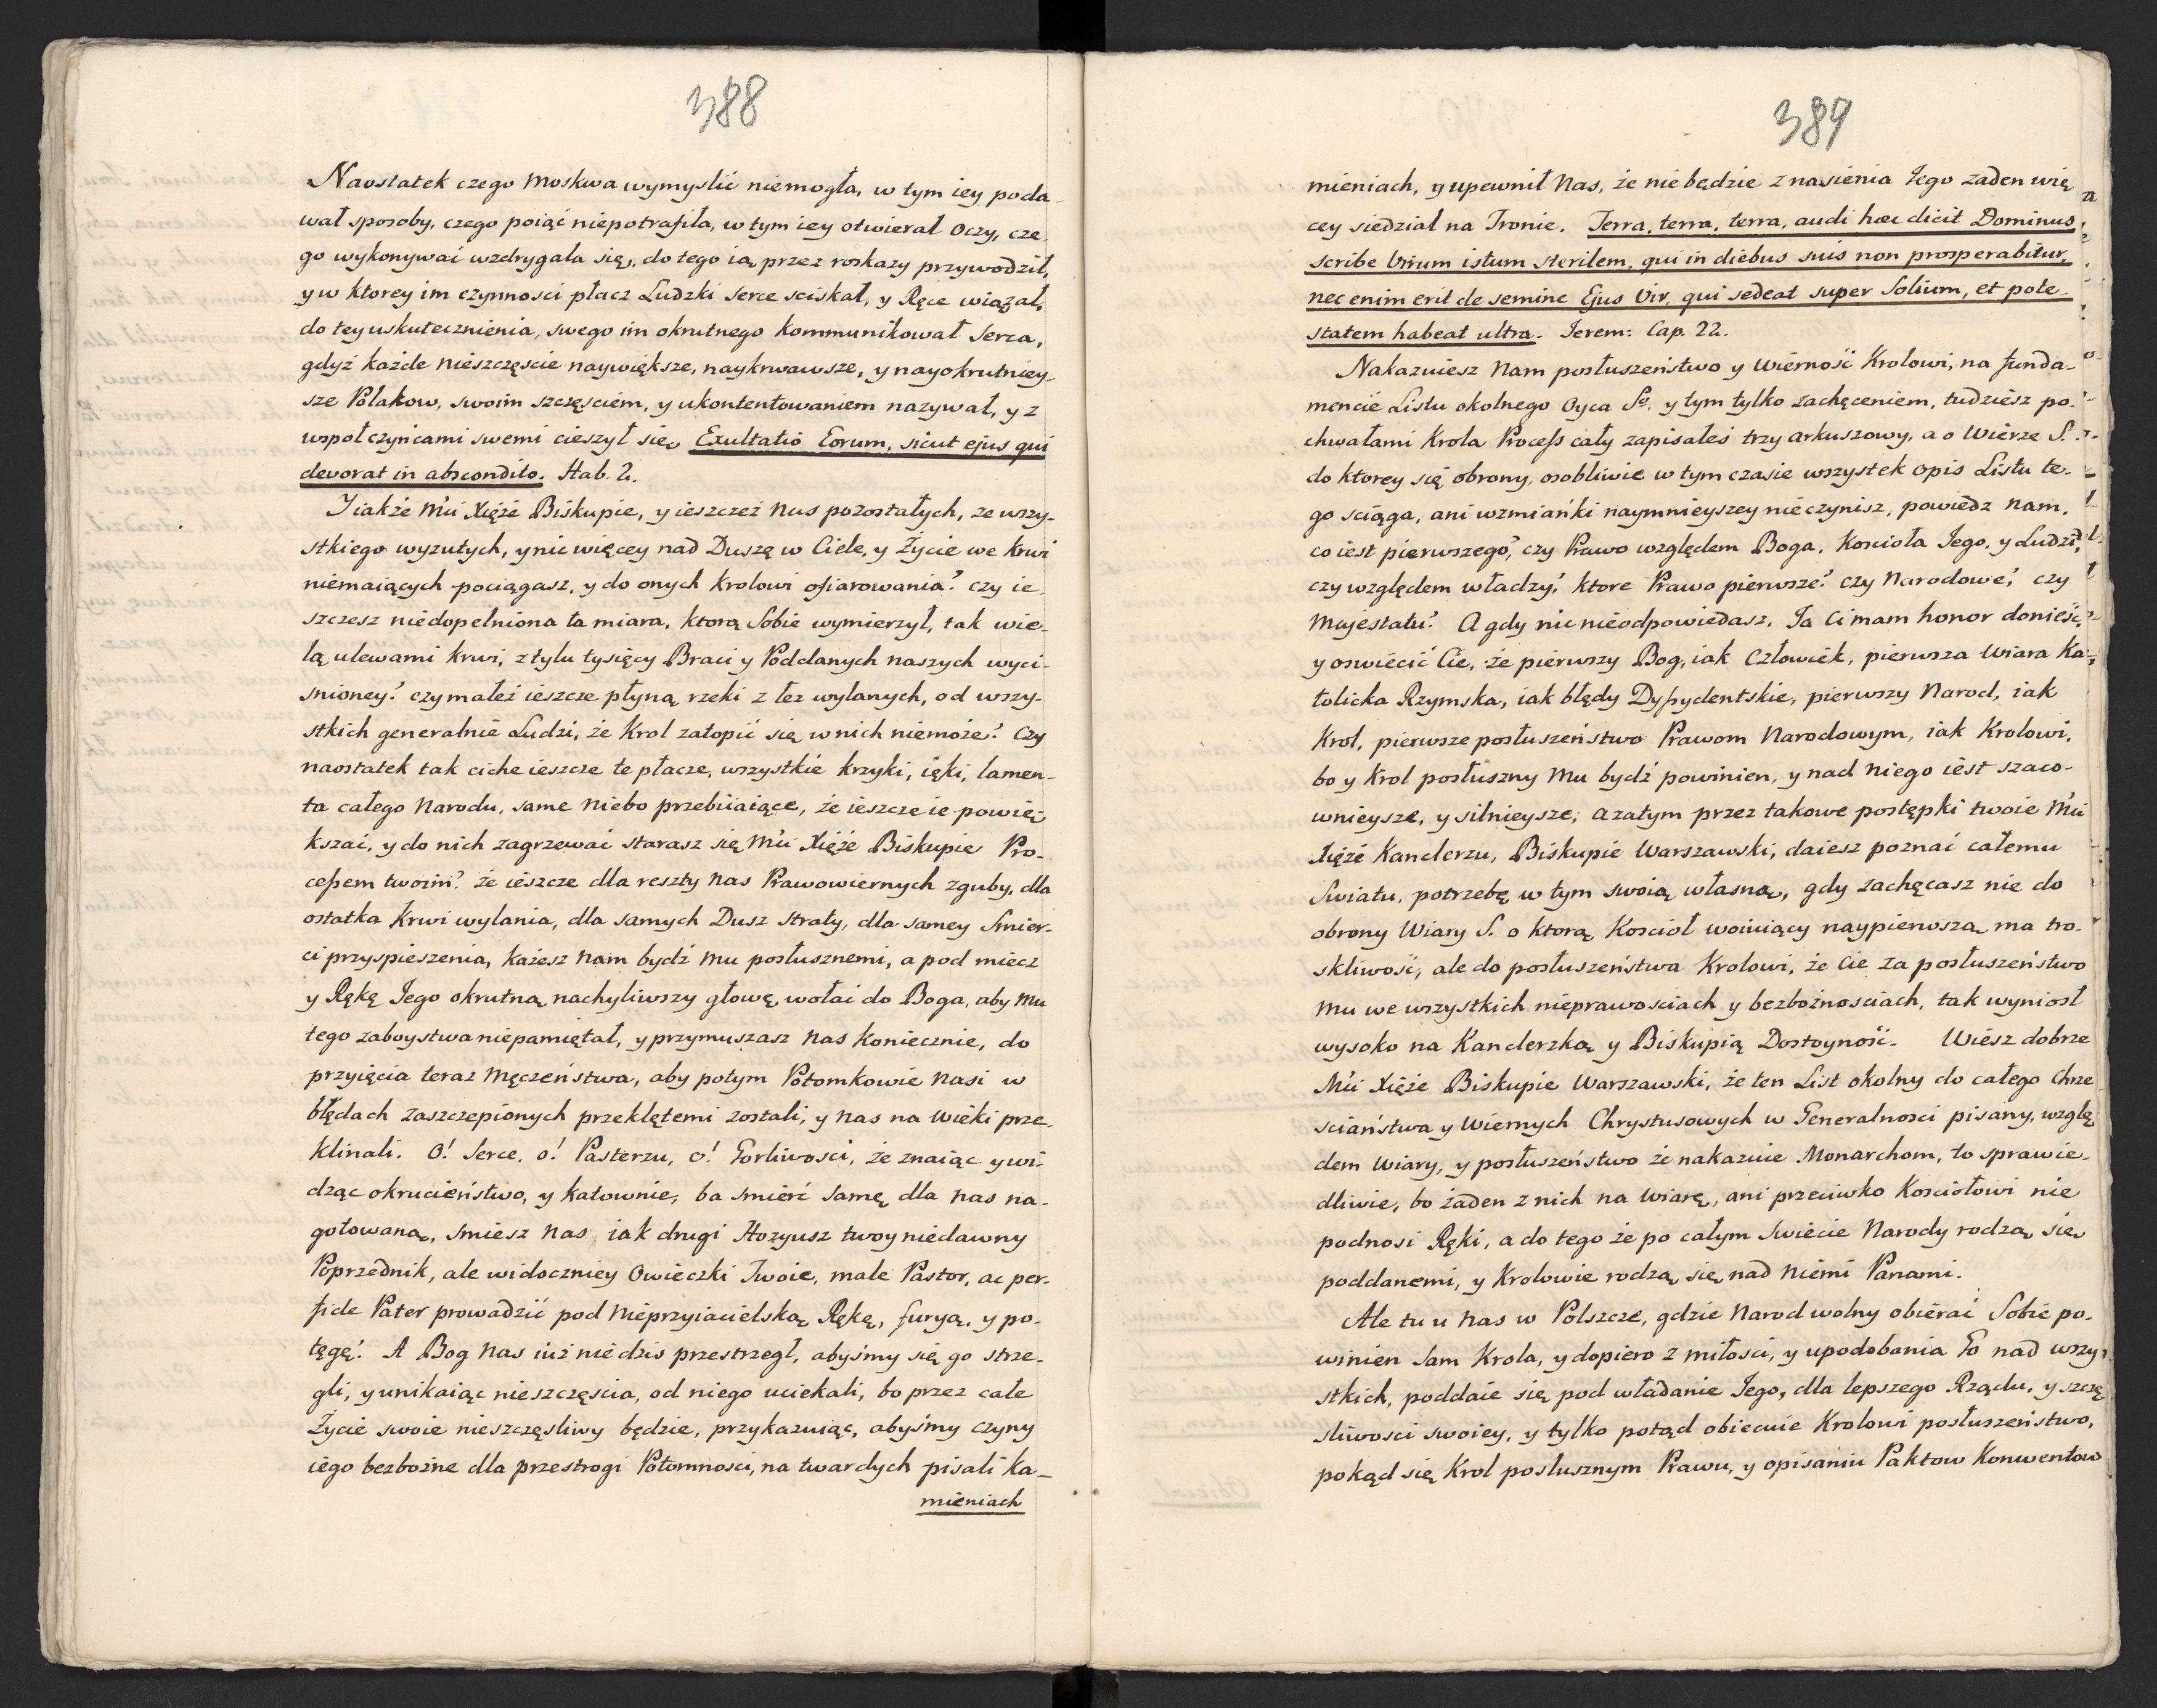 388
Naostatek czego Moskwa wymyslić niemogła, w tym iey poda-
wał sposoby, czego poiąć niepotrafiła, w tym iey otwierał Oczy, cze-
go wykonywać wzdrygała się, do tego ią przez roskazy przywodził,
y w ktorey im czynnosci płacz Ludzki serce sciskał, y Ręce wiązał,
do tey uskutecznienia, swego im okrutnego kommunikował serca,
gdyż każde nieszczęscie naywiększe, naykrwawsze, y nayokrutniey-
sze Polakow, swoim szczęsciem, y ukontentowaniem nazywał, y z
wspołczyńcami swemi cieszył się, Exultatio Eorum, sicut ejus qui
devorat in abscondito. Hab. 2.
Y iakże Mći Xięże Biskupie, y ieszczeż nas pozostałych, ze wszy-
stkiego wyzutych, y nic więcey nad Duszę w Ciele, y Życie we krwi
niemaiących pociągasz, y do onych Krolowi ofiarowania? czy ie-
szczesz niedopełniona ta miara, ktorą Sobie wymierzył, tak wie-
lą ulewami krwi, z tylu tysięcy Braci y Poddanych naszych wyci-
snioney? czy małeż ieszcze płyną rzeki z łez wylanych, od wszy-
stkich generalnie Ludzi, że Krol zatopić się w nich niemoże? Czy
naostatek tak ciche ieszcze te płacze, wszystkie krzyki, ięki, lamen-
ta całego Narodu, same Niebo przebiiaiące, że ieszcze ie powię-
kszać, y do nich zagrzewać starasz się Mći Xięże Biskupie Pro-
cessem twoim? że ieszcze dla reszty nas Prawowiernych zguby, dla
ostatka Krwi wylania, dla samych Dusz straty, dla samey Smier-
ci przyspieszenia, każesz nam bydź mu posłusznemi, a pod miecz
y Rękę Jego okrutną nachyliwszy głowę, wołać do Boga, aby Mu
tego zaboystwa niepamiętał, y przymuszasz nas koniecznie, do
przyięcia teraz Męczeństwa, aby potym Potomkowie Nasi w
błędach zaszczepionych przeklętemi zostali, y nas na wieki prze-
klinali. O! Serce, o! Pasterzu, o! Gorliwosci, że znaiąc y wi-
dząc okrucieństwo, y katownie, ba smierć samę dla nas na-
gotowaną, smiesz nas iak drugi Hozyusz twoy niedawny
Poprzednik, ale widoczniey Owieczki Twoie, male Pastor, ac per-
fide Pater prowadzić pod Nieprzyiacielską Rękę, furyą, y po-
tęgę? A Bog nas iuż nie dzis przestrzegł, abyśmy się go strze-
gli, y unikaiąc nieszczęscia, od niego uciekali, bo przez całe
Życie swoie nieszczęsliwy będzie, przykazuiąc, abyśmy czyny
iego bezbożne dla przestrogi Potomnosci, na twardych pisali ka-
mieniach
389
mieniach, y upewnił Nas, że nie będzie z nasienia Jego żaden wię
cey siedział na Tronie. Terra, terra, terra, audi hæc dicit Dominus,
scribe Virum istum sterilem, qui in diebus suis non prosperabitur,
nec enim erit de semine Ejus Vir, qui sedeat super Solium, et pote-
statem habeat ultra. Jerem: Cap. 22.
Nakazuiesz Nam posłuszeństwo y wierność Krolowi, na funda-
mencie Listu okolnego Oyca Sgo. y tym tylko zachęceniem, tudziesz po-
chwałami Krola Process cały zapisałeś trzy arkuszowy, a o Wierze S.
do ktorey się obrony, osobliwie w tym czasie wszystek opis Listu te-
go sciąga, ani wzmianki naymnieyszey nieczynisz, powiedz nam,
co iest pierwszego? czy Prawo względem Boga, Kosciola Jego, y Ludzi?
czy względem władzy? ktore Prawo pierwsze? czy Narodowe? czy
Majestatu? A gdy nic nieodpowiedasz, Ja Ci mam honor donieść,
y oswiecić Cie, że pierwszy Bog, iak Człowiek, pierwsza Wiara Ka-
tolicka Rzymska, iak błędy Dyssydentskie, pierwszy Narod, iak
Krol, pierwsze posłuszeństwo Prawom Narodowym, iak Krolowi,
bo y Krol posłuszny Mu bydź powinien, y nad niego iest szaco-
wnieysze, y silnieysze; a zatym przez takowe postępki twoie Mći
Xięże Kanclerzu, Biskupie Warszawski, daiesz poznać całemu
Swiatu, potrzebę w tym swoią własną, gdy zachęcasz nie do
obrony Wiary S. o ktorą Kosciol woiuiący naypierwszą ma tro-
skliwość, ale do posłuszeństwa Krolowi, że Cie za posłuszeństwo
mu we wszystkich nieprawosciach y bezbożnosciach, tak wyniosł
wysoko na Kanclerzką y Biskupią Dostoyność. Wiesz dobrze
Mći Xięże Biskupie Warszawski, że ten List okolny do całego Chrze
sciaństwa y Wiernych Chrystusowych w Generalnosci pisany, wzglę
dem Wiary, y posłuszeństwo że nakazuie Monarchom, to sprawie-
dliwie, bo żaden z nich na Wiarę, ani przeciwko Kosciołowi nie
podnosi Ręki, a do tego że po całym Swiecie Narody rodzą się
poddanemi, y Krolowie rodzą się nad niemi Panami.
Ale tu u nas w Polszcze, gdzie Narod wolny obierać Sobie po-
winien sam Krola, y dopiero z miłosci, y upodobania Go nad wszy-
stkich, poddaie się pod władanie Jego, dla lepszego Rządu, y szczę
sliwosci swoiey, y tylko potąd obiecuie Krolowi posłuszeństwo,
pokąd się Krol posłusznym Prawu, y opisaniu Paktow Konwentow